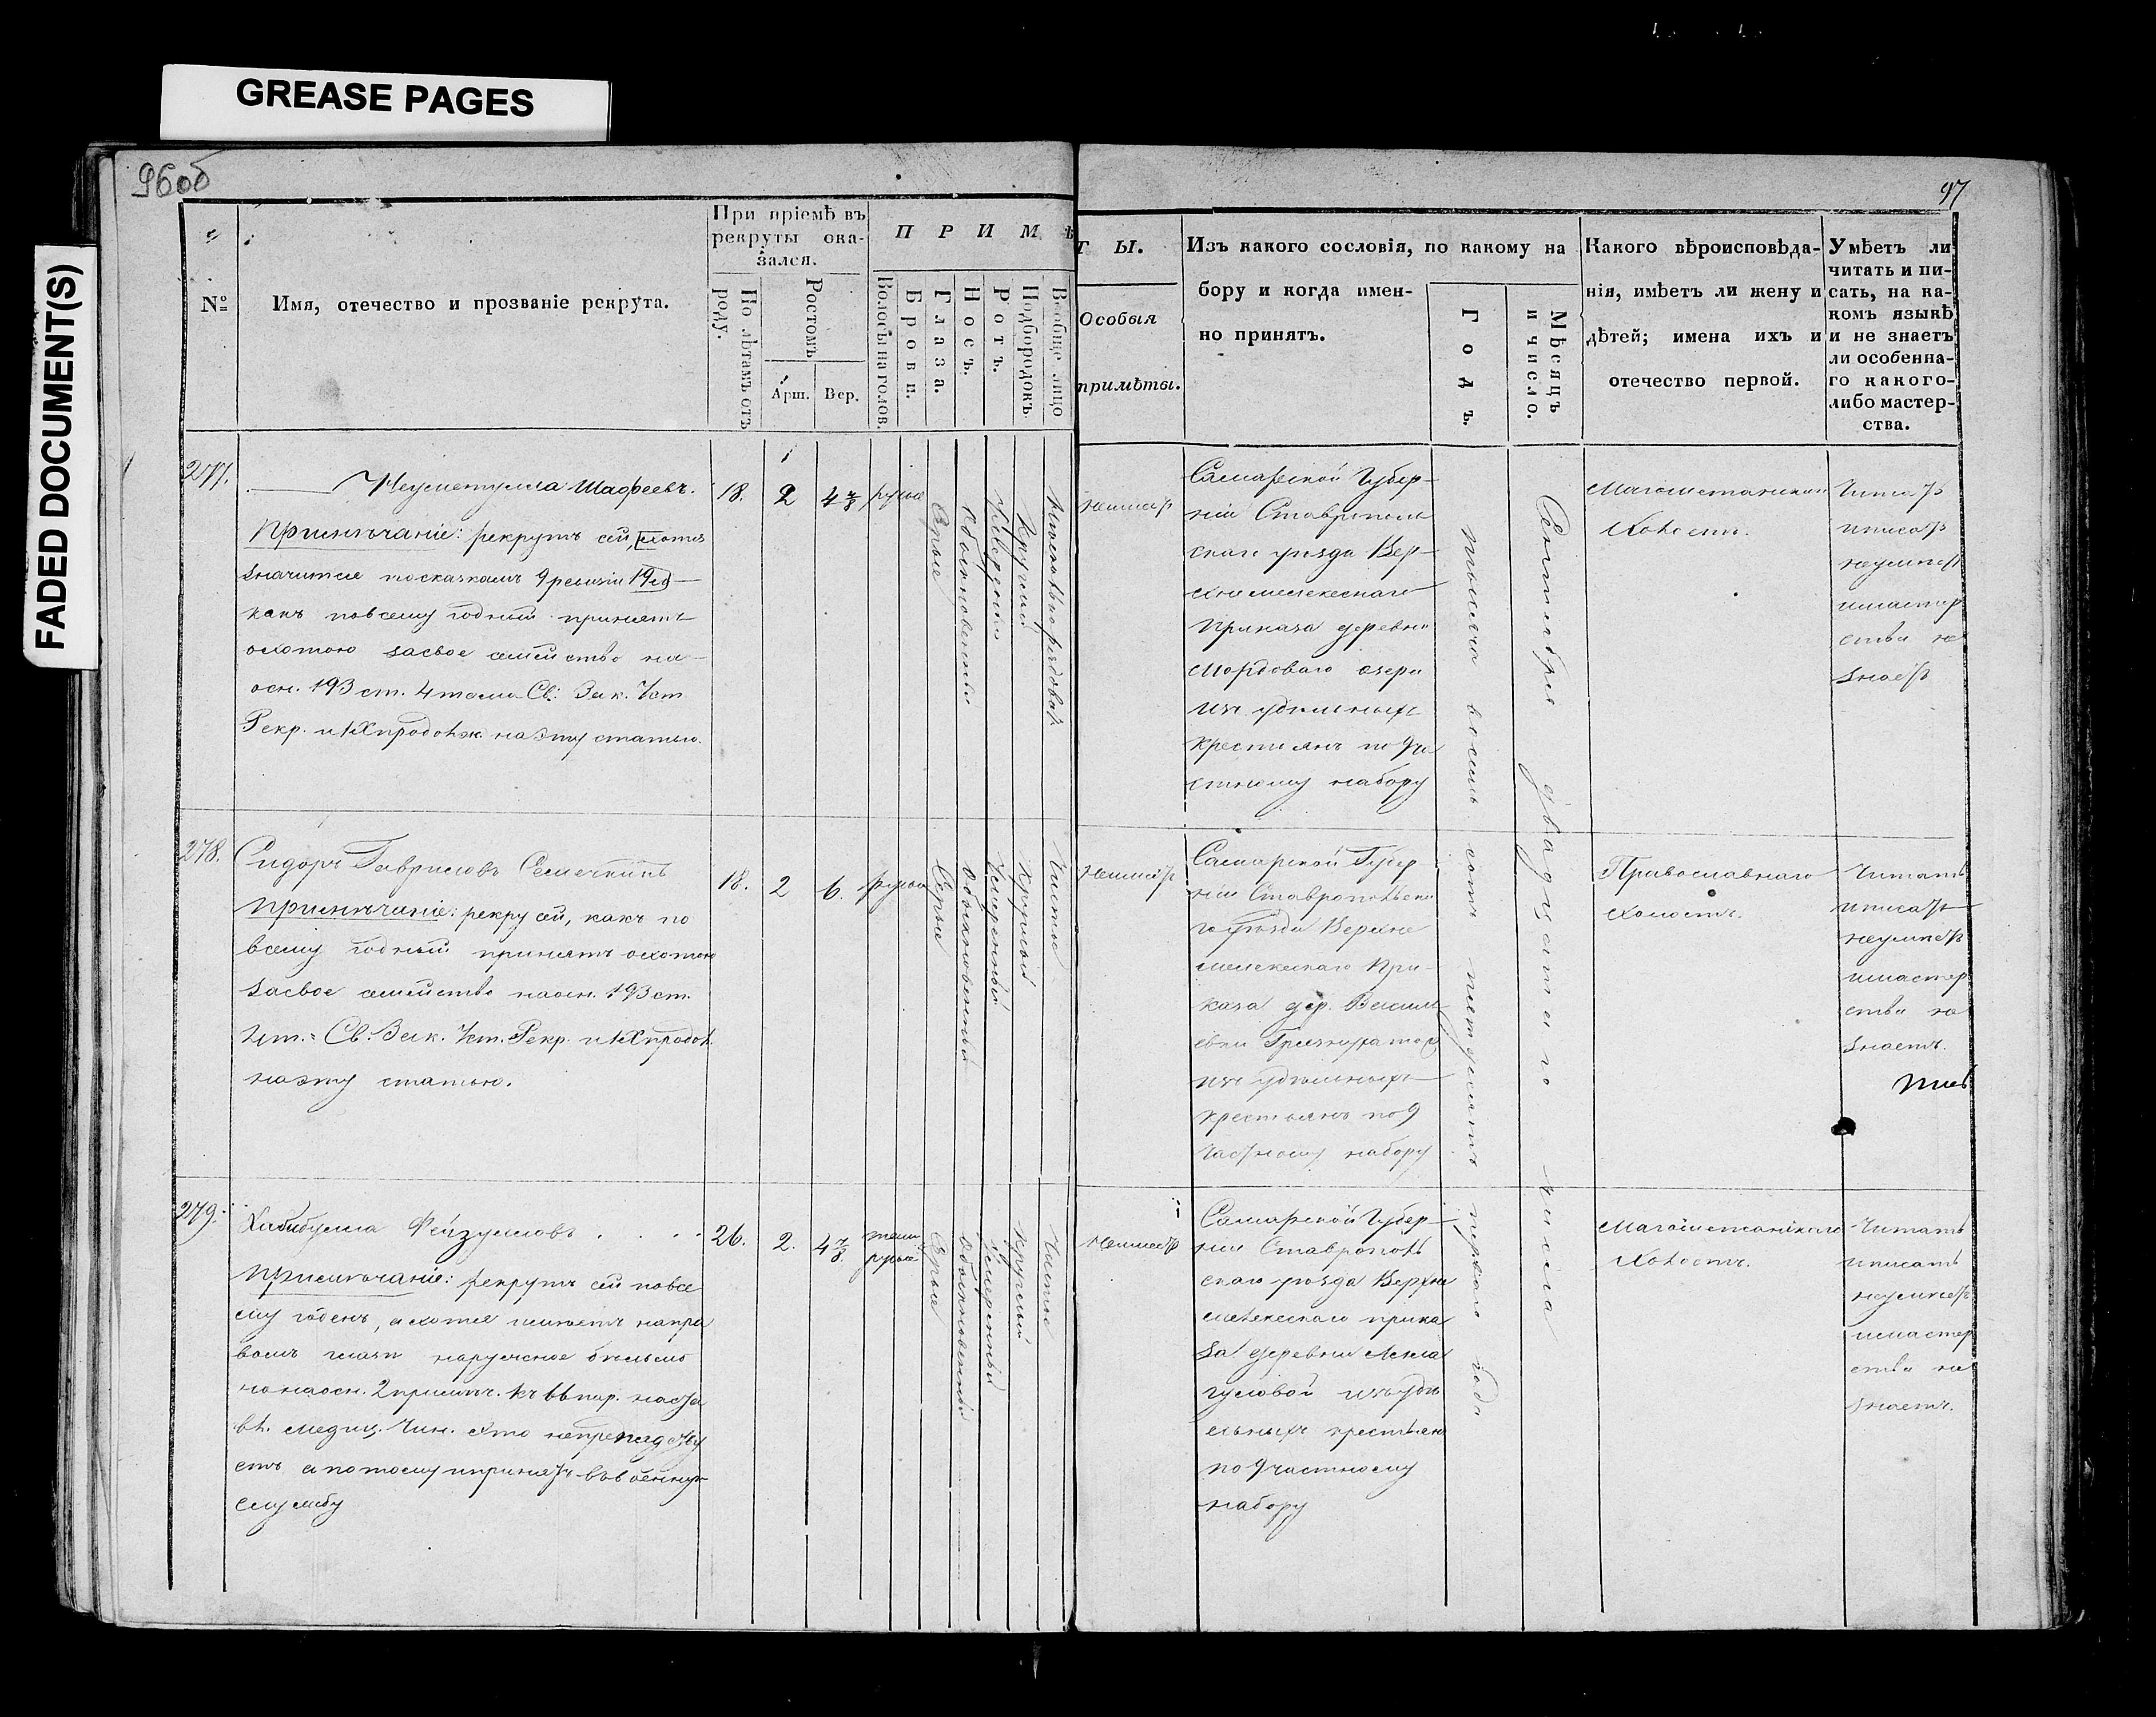 GREASE PAGES
FADED DOCUMENT(S)
96об
97
№
Имя, отечество и прозваніе рекрута.
При пріемѣ въ
рекруты ока-
зался.
По лѣтамъ отъ
роду.
Ростомъ
Арш.
Вер.
П Р И М Ѣ
Волосы на голов.
Брови.
Глаза.
Носъ.
Ротъ.
Подбородокъ.
Вообще лицо
Т Ы.
Особыя
примѣты.
Изъ какого сословія, по какому на
бору и когда имен-
но принятъ.
Годъ.
Мѣсяцъ
и число.
Какого вѣроисповѣда-
нія, имѣетъ ли жену и
дѣтей; имена ихъ и
отечество первой.
Умѣетъ ли
читать и пи-
сать, на ка-
комъ языкѣ
и не знаетъ
ли особенна-
го какого-
либо мастер-
ства.
277.
Шафеевъ.
Примѣчаніе: рекрутъ сей, хотя
значится по сказкамъ 9 ревизіи 19
какъ повсему годный принятъ
охотою засвое семейство на
осн. 193 ст. 4 тома Св: Зак. Уст
Рекр. и IX продолж. наэту статью.
18.
2
4 7/8
русые
Сѣрые
Обыкновенный
Умѣренный
Круглый
неимѣетъ
Самарской Губер-
ніи Ставрополь
скаго уѣзда Вер-
хнемелекескаго
Приказа деревни
Мордоваго озера
изъ удѣльныхъ
крестьянъ по 9 ча
стному набору
тысяча восемь сотъ пятьдесятъ перваго года
Сентября двадцатаго числа
Магометанскаго
Холостъ.
Читать
и писать
неумѣетъ
и мастер
ства не
знаетъ
278.
Сидоръ Гавриловъ Семечкинъ
Примѣчаніе: рекру сей, какъ по
всему годный принятъ охотою
засвое семейство наосн. 193 ст.
4 т. Св. Зак. Уст. Рекр. и IX продол.
наэту статью.
18.
2
6.
русые
Сѣрые
Обыкновенный
Умѣренный
Круглый
Чистое
неимѣетъ
Самарской Губер
ніи Ставропольска
го уѣзда Верхне
мелекескаго При-
каза дер. Василь
евки
изъ удѣльныхъ
крестьянъ по 9
частному набору
Православнаго
холостъ.
Читать
и писать
неумѣетъ
и мастер
ства не
знаетъ.
279.
Хабибулла Фейзулловъ
Примѣчаніе: рекрутъ сей повсе
му годенъ, а хотя имѣетъ направ
вомъ глазѣ наружное бѣльмо
но наосн. 2 примѣч. къ 66 пар. наста
вл. медиц. Чин. это непрепядству
етъ а потому и принятъ ввоенную
службу
26.
2.
4 7/8.
темно
русые
Сѣрые
Обыкновенный
Умѣренный
Круглый
Чистое
неимѣетъ
Самарской Губер-
ніи Ставрополь
скаго уѣзда Верхне
мелекескаго прика
за деревни Аскла
гуловой изъ удѣ
льныхъ крестьянъ
по 9 частному
набору
Магометанскаго
Холостъ.
Читать
и писать
неумѣетъ
и мастер
ства не
знаетъ.